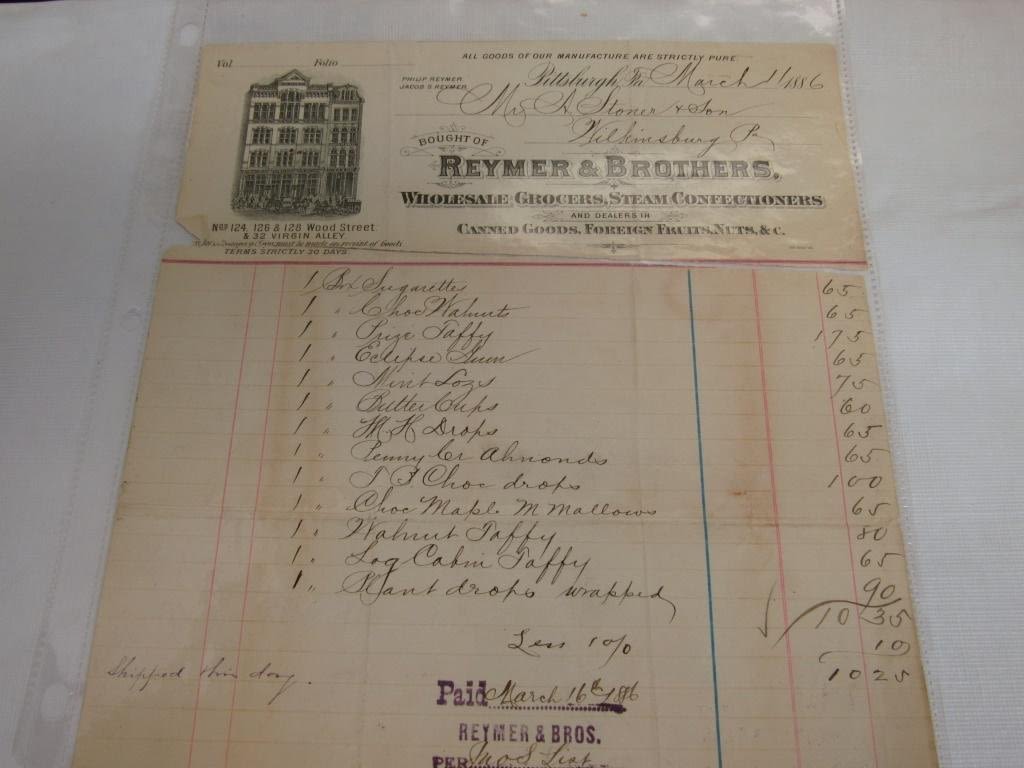 Vol Folio
ALL GOODS OF OUR MANUFACTURE ARE STRICTLY PURE
PHILIP REYMER.
JACOB S REYMER.
Pittsburgh, Pa. March 1886
Stoner & Son
Wilkinsburg Pa
BOUGHT OF
REYMER & BROTHERS,
WHOLESALE GROCERS, STEAM CONFECTIONERS
AND DEALERS IN
CANNED GOODS, FOREIGN FRUITS, NUTS, & C.
Nos 124, 126 & 128 Wood Street
& 32 VIRGIN ALLEY
must be made on receipt of Goods
TERMS STRICTLY 30 DAYS.
1 Bx Sugarettes 65
1 " Choc Walnuts 65
1 " Prize Taffy 175
1 " Eclipse Gum 65
1 " Mint Lozs 75
1 " Butter Cups 60
1 " M H Drops 65
1 " Penny Cr Almonds 65
1 " Choc drops 100
1 " Choc Maple M Mallows 65
1 " Walnut Taffy 80
1 " Log Cabin Taffy 65
1 " drops wrapped 90
10 35
Less 1% 10
10 25
Shipped this day.
Paid March 16th 1886
REYMER & BROS.
PER